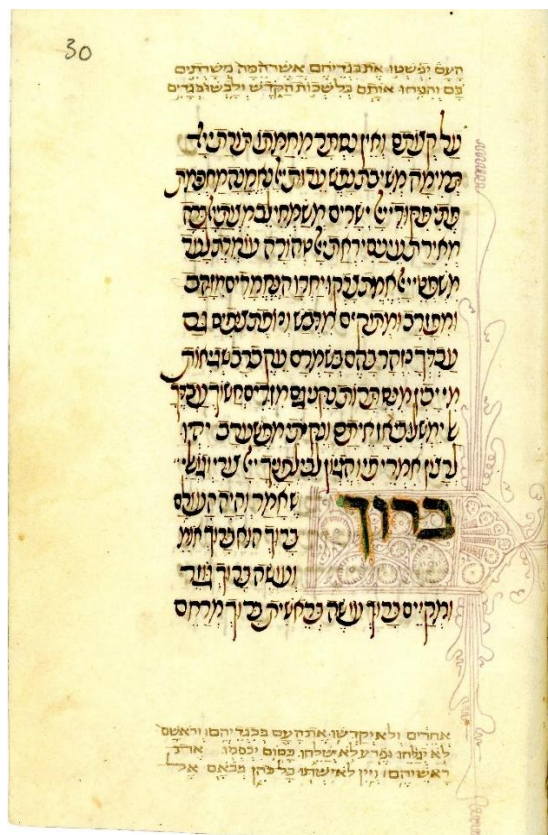 30
העם יפשטו את בגדיהם אשר המה משרתים
בם והניחו אותם בלשכות הקדש ולבשו בגדים
על קצותם ואין נסתר מחמתו תורת ייי
תמימה משיבת נפש עדות ייי נאמנה מחכימת
פתי פקודי ייי ישרים משמחי לב מצות ייי ברה
מאירת עינים יראת ייי טהורה עומדת לעד
משפטי ייי אמת צדקו יחדו הנחמדים מזהב
ומפז רב ומתוקים מדבש ונופת צופים גם
עבדך נזהר בהם בשמרם עקב רב שגיאות
מי יבין מנסתרות נקני גם מזדים חשוך עבדך
אל ימשלו בי אז איתם ונקיתי מפשע רב יהיו
לרצון אמרי פי והגיון לבי לפניך ייי צורי וגואלי
ברוך שאמר והיה העולם
ברוך הוא ברוך אומר
ועושה ברוך גוזר
ומקיים ברוך עושה בראשית ברוך מרחם
אחרים ולא יקדשו את העם בבגדיהם וראשם
לא יגלחו ופרע לא ישלחו כסום יכסמו את
ראשיהם ויין לא ישתו כל כהן בבאם אל